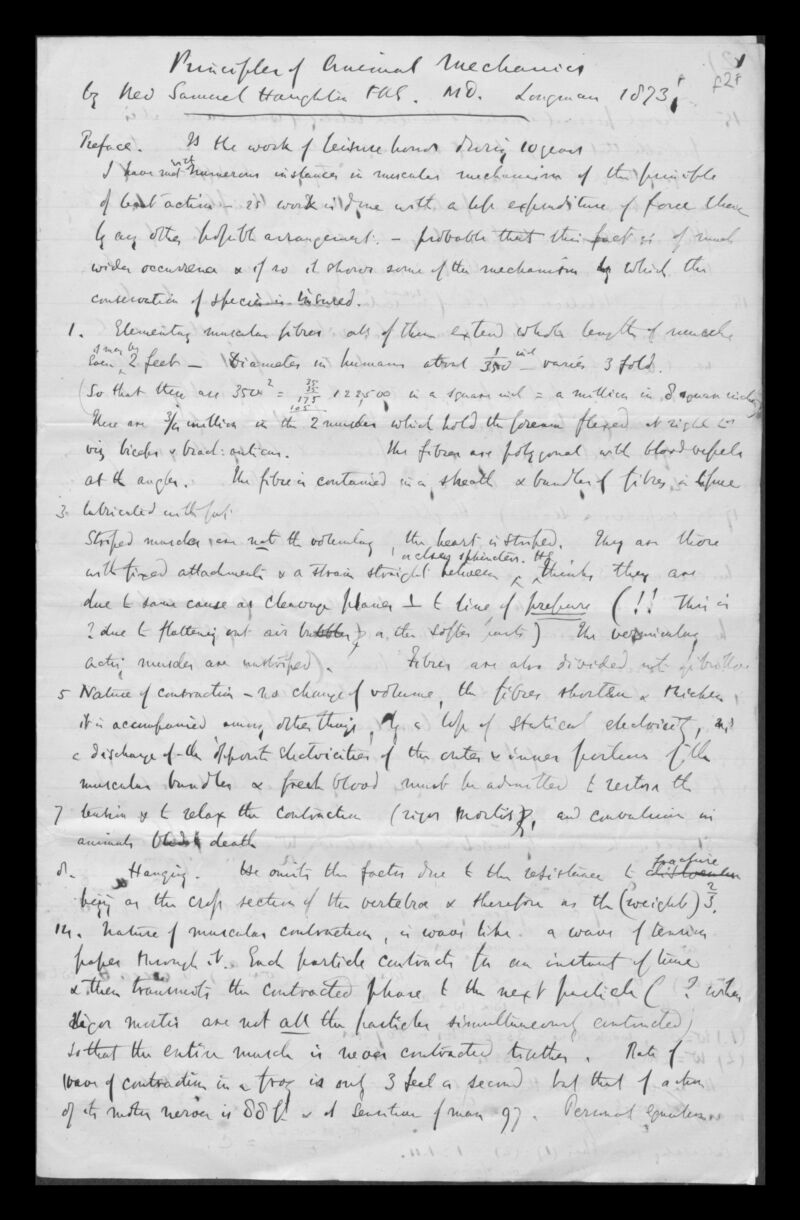 Principles of Animal Mechanics
by Rev Samuel Haughton FRS. MD. Longman 1873.
1
f28
Preface. Is the work of leisure hours during 10 years
I have met with numerous instances in muscular mechanism of the principle
of least action – is work is done with a less expenditure of force than
by any other possible arrangement. – probable that this fact is of much
wider occurrence & if so it shows some of the mechanism by which the
conservation of species is insured.
1. Elementary muscular fibres all of them extend whole length of muscle
even if may be 2 feet – Diameter in humans about 1/350 inch varies 3 fold.
(So that there are 350² = 122,500 in a square inch = a million in 8 square inches)
35
35
175
105
There are 3/4 million in the 2 muscles which hold the forearm flexed at right
viz biceps & brach: anticus. The fibres are polygonal with blood vessels
at the angles. The fibre is contained in a sheath & bundles of fibres in
3. lubricated with fat.
Striped muscles are not the voluntary, the heart is striped. They are those
with fixed attachments & a strain straight between or closing sphincters. He thinks they are
due to same cause as cleavage planes ⊥ to line of pressure (!! This is
? due to flattening out air bubbles or other softer parts) The vermicular
acting muscles are unstriped. Fibres are also divided
5 Nature of contraction – no change of volume, the fibres shorten & thicken,
it is accompanied among other things, by a loss of statical electricity,
a discharge of the opposite electricities of the outer & inner portions of the
muscular bundles & fresh blood must be admitted to restore the
7 tension & to relax the contraction (rigor mortis), and convulsion in
animals bled to death
8. Hanging. He omits the factor due to the resistance to fracture
being as the cross section of the vertebra & therefore as the (weight)⅔.
14. Nature of muscular contraction, is wave like. a wave of tension
passes through it. Each particle contracts for an instant of time
& then transmits the contracted phase to the next particle (? when
rigor mortis are not all the particles simultaneously contracted)
so that the entire muscle is never contracted together. Rate of
wave of contraction in a frog is only 3 feet a second but that of action
of its motor nerves is 88 ft & of sensation of man 97. Personal equation